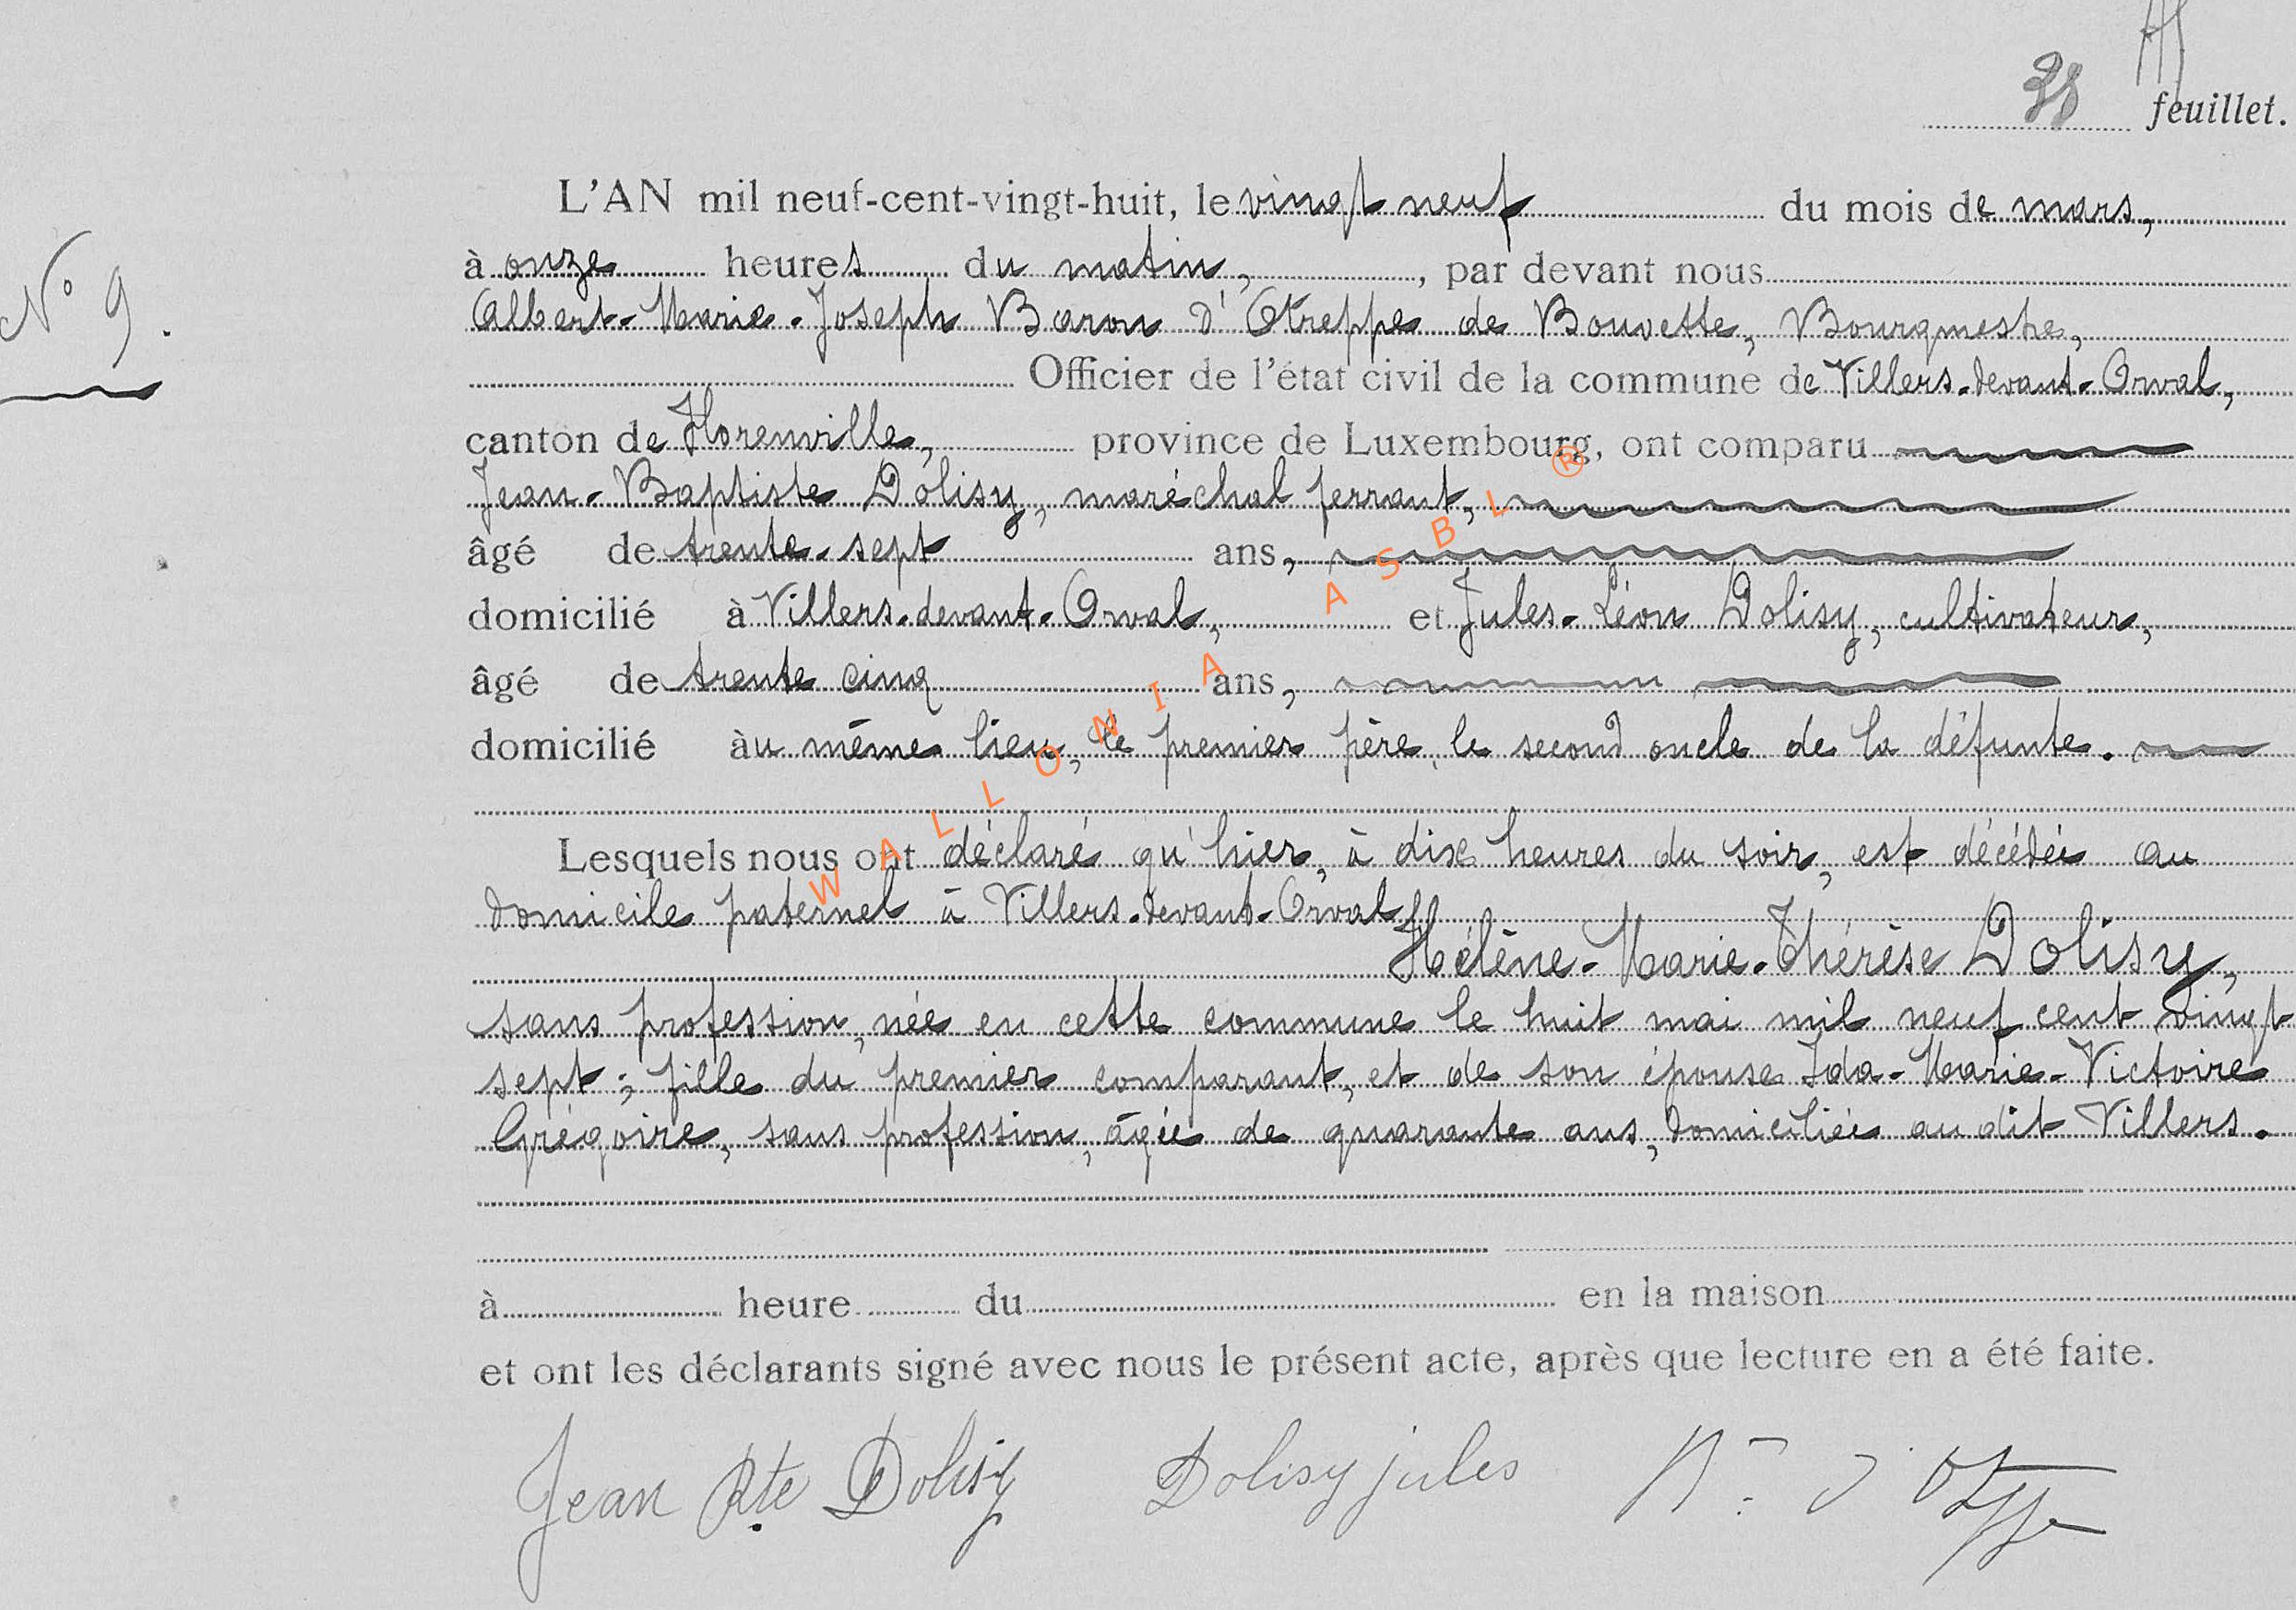 28 feuillet.
L'AN mil neuf-cent-vingt-huit, le vingt neuf du mois de mars,
N° 9.
à onze heures du matin, , par devant nous
Albert-Marie-Joseph Baron d'Otreppe de Bouvette, Bourgmestre,
Officier de l'état civil de la commune de Villers-devant-Orval,
canton de Florenville, province de Luxembourg, ont comparu
Jean-Baptiste Dolisy, maréchal ferrant,
âgé de trente-sept ans,
domicilié à Villers-devant-Orval, et Jules-Léon Dolisy, cultivateur,
âgé de trente cinq ans,
domicilié àu même lieu, le premier père, le second oncle de la défunte.
Lesquels nous ont déclaré qu'hier, à dix heures du soir, est décédée au
domicile paternel à Villers-devant-Orval
Hélène-Marie-Thérèse Dolisy,
sans profession, née en cette commune le huit mai mil neuf cent vingt
sept; fille du premier comparant, et de son épouse Ida-Marie-Victoire
Grégoire, sans profession, âgée de quarante ans, domiciliée au dit Villers.
à heure du en la maison
et ont les déclarants signé avec nous le présent acte, après que lecture en a été faite.
Jean Bte Dolisy Dolisy jules
WALLONIA ASBL ®